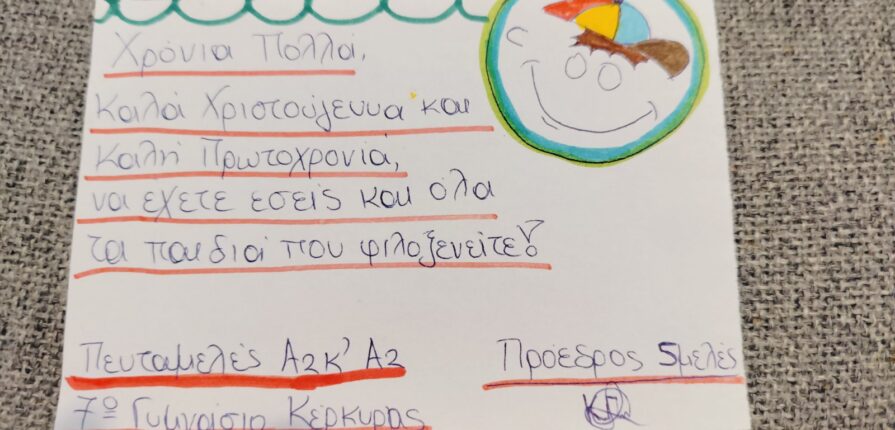 Χρόνια Πολλά,
Καλά Χριστούγεννα και
Καλή Πρωτοχρονιά,
να έχετε εσείς και όλα
τα παιδιά που φιλοξενείτε!
Πενταμελές Α2 κ' Α2
Πρόεδρος 5μελές
7º Γυμνάσιο Κέρκυρας